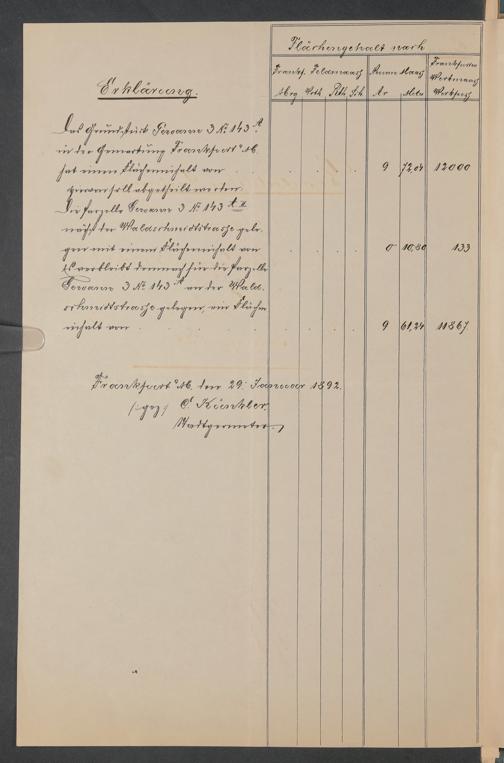 Flächengehalt nach
Frankf. Feldmaaß Neuem Maaß Frankfurter Werkmaaß
Mrg Vrtl. Rth Sch Ar Meter Werkfuß
Erklärung.
Das Grundstück Gewann 3 No 143 A.
in der Gemarkung Frankfurt a/M.
hat einen Flächeninhalt von 9 72,04 12000
hiervon soll abgetheilt werden:
Die Parzelle Gewann 3 No 143 A
nächst der Waldschmidtstraße gele-
gen mit einem Flächeninhalt von 0 10,80 133
Es verbleibt demnach für die Parzelle
Gewann 3 No 143 A an der Wald-
schmidtstrasse gelegen, ein Flächen
inhalt von 9 61,24 11867
Frankfurt a/M. den 29. Januar 1892.
(gez)
Stadtgeometer